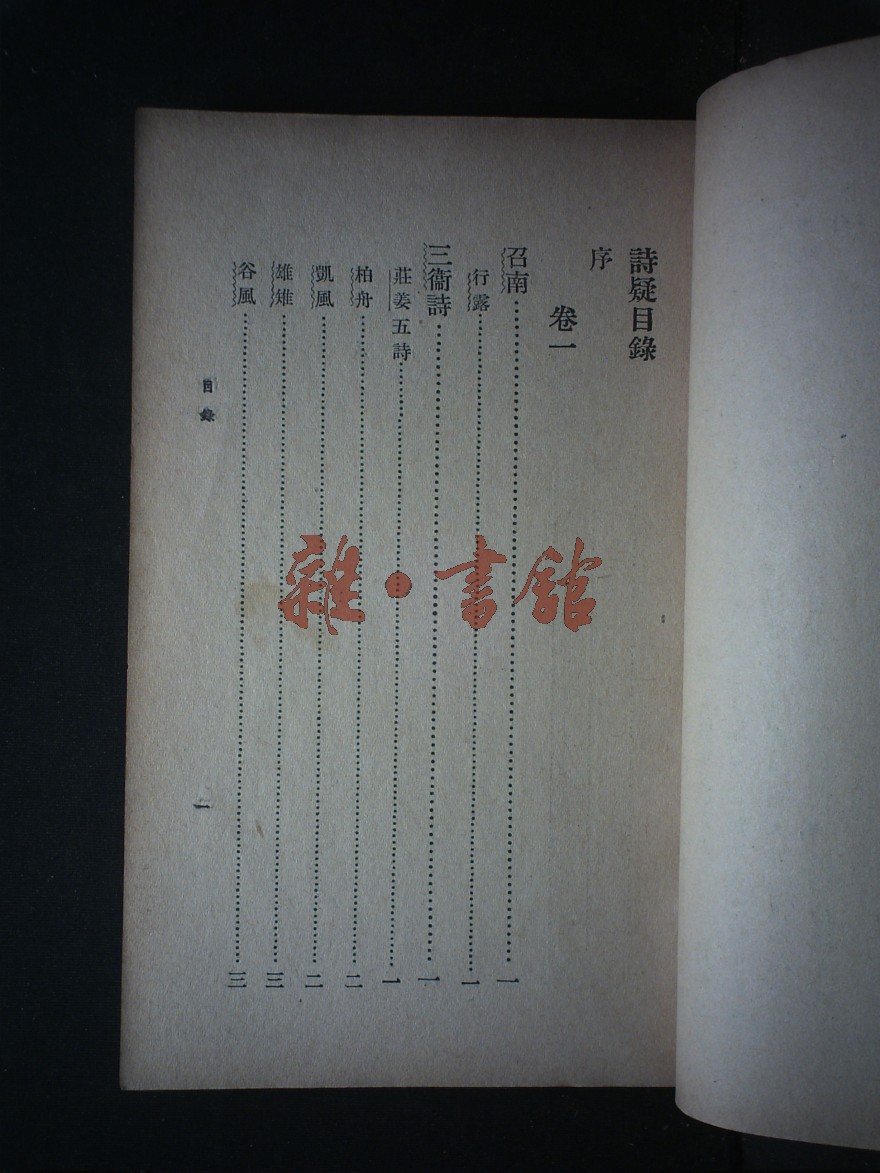 詩疑目錄
序
卷一
召南……一
行露……一
三衞詩……一
莊姜五詩……一
柏舟……二
凱風……二
雄雉……三
谷風……三
目錄
一
雜·書館